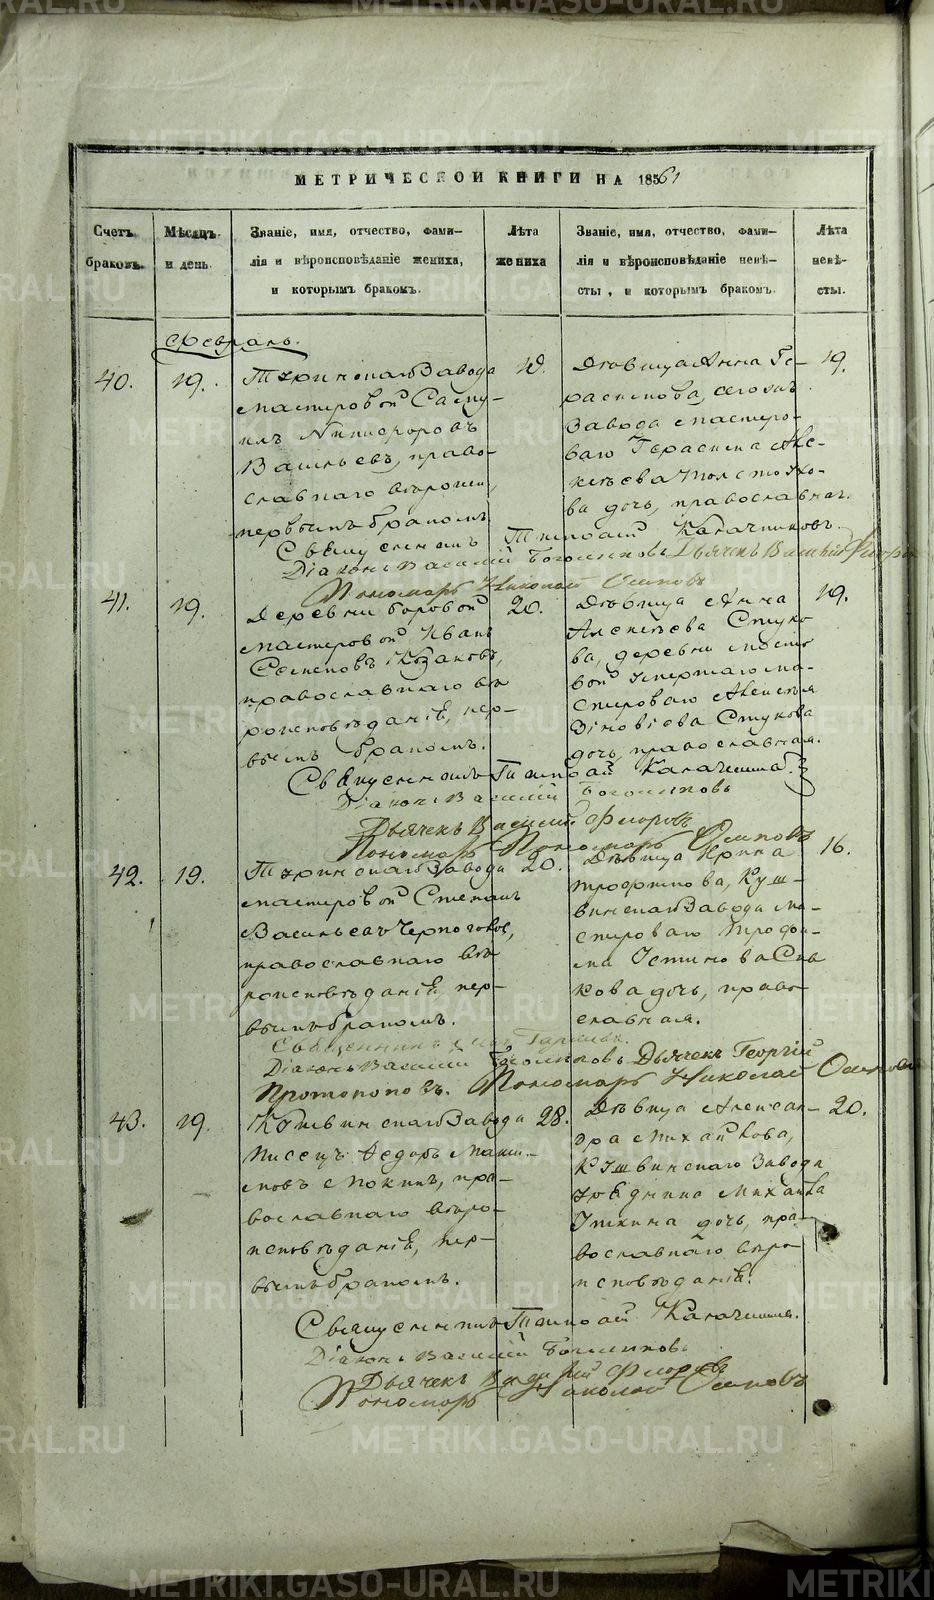 МЕТРИЧЕСКОЙ КНИГИ НА 1861
Счетъ браковъ.
Мѣсяцъ и день.
Званіе, имя, отчество, фами-
лія и вѣроисповѣданіе жениха,
и которымъ бракомъ.
Лѣта
жениха
Званіе, имя, отчество, фами-
лія и вѣроисповѣданіе невѣ-
сты, и которымъ бракомъ.
Лѣта
невѣ-
сты.
Февраль.
40.
19.
Туринскаго Завода
мастеровой Саму-
илъ Никифоровъ
Васильевъ, право-
славнаго
первымъ бракомъ
19.
Дѣвица Анна Ге-
расимова, сегожъ
Завода мастеро-
ваго Герасима Але-
ксѣева
ва дочь, православная.
19.
Священникъ Тимофей Калачниковъ.
Діаконъ Василій Боголеповъ Дьячекъ Василій
Пономарь Николай Осиповъ
41.
19.
Деревни Боровой
мастеровой Иванъ
Семеновъ Казаковъ,
православнаго вѣ-
роисповѣданія, пер-
вымъ бракомъ.
20.
Дѣвица Анна
Алексѣева Стуко-
ва, деревни
вой умершаго ма-
стероваго Алексѣя
Зиновіева Стукова
дочь, православная.
19.
Священникъ Тимофей
Діаконъ Василій Боголеповъ
Дьячекъ Василій Флоровъ
Пономарь Осиповъ
42.
19.
Туринскаго Завода
мастеровой Степанъ
Васильевъ
православнаго вѣ-
роисповѣданія, пер-
вымъ бракомъ.
20.
Дѣвица Ирина
Трофимова, Куш-
винскаго Завода ма-
стероваго Трофи-
ма Устинова
кова дочь, право-
славная.
16.
Священникъ
Діаконъ Василій Боголеповъ Дьячекъ Георгій
Протопоповъ. Пономарь Николай Осиповъ
43.
19.
Кушвинскаго Завода
писецъ Ѳедоръ Макси-
мовъ Мокинъ, пра-
вославнаго вѣро-
исповѣданія, пер-
вымъ бракомъ.
28.
Дѣвица Алексан-
дра Михайлова,
Кушвинскаго Завода
урядника Михаила
Уткина дочь, пра-
вославнаго вѣро-
исповѣданія.
20.
Священникъ Тимофей
Діаконъ Василій Боголеповъ
Дьячекъ Василій Флоровъ
Пономарь Николай Осиповъ
METRIKI.GASO-URAL.RU